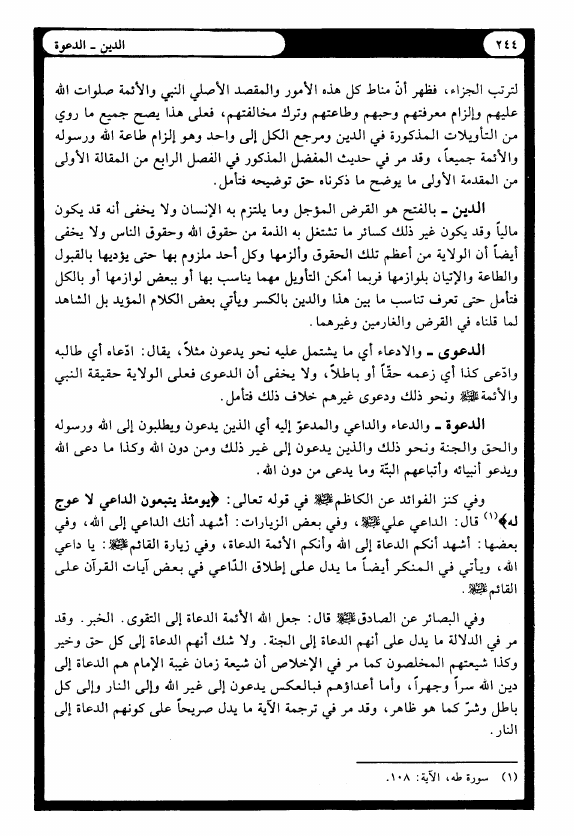 ٢٤٤
الدين - الدعوة
لترتب الجزاء، فظهر أنّ مناط كل هذه الأمور والمقصد الأصلي النبي والأئمة صلوات الله
عليهم وإلزام معرفتهم وحبهم وطاعتهم وترك مخالفتهم، فعلى هذا يصح جميع ما روي
من التأويلات المذكورة في الدين ومرجع الكل إلى واحد وهو إلزام طاعة الله ورسوله
والأئمة جميعاً، وقد مر في حديث المفضل المذكور في الفصل الرابع من المقالة الأولى
من المقدمة الأولى ما يوضح ما ذكرناه حق توضيحه فتأمل.
الدين - بالفتح هو القرض المؤجل وما يلتزم به الإنسان ولا يخفى أنه قد يكون
مالياً وقد يكون غير ذلك كسائر ما تشتغل به الذمة من حقوق الله وحقوق الناس ولا يخفى
أيضاً أن الولاية من أعظم تلك الحقوق وألزمها وكل أحد ملزوم بها حتى يؤديها بالقبول
والطاعة والإتيان بلوازمها فربما أمكن التأويل مهما يناسب بها أو ببعض لوازمها أو بالكل
فتأمل حتى تعرف تناسب ما بين هذا والدين بالكسر ويأتي بعض الكلام المؤيد بل الشاهد
لما قلناه في القرض والغارمين وغيرهما.
الدعوى - والادعاء أي ما يشتمل عليه نحو يدعون مثلاً، يقال: ادّعاه أي طالبه
وادّعى كذا أي زعمه حقّاً أو باطلاً، ولا يخفى أن الدعوى فعلى الولاية حقيقة النبي
والأئمة ﷺ ونحو ذلك ودعوى غيرهم خلاف ذلك فتأمل.
الدعوة - والدعاء والداعي والمدعوّ إليه أي الذين يدعون ويطلبون إلى الله ورسوله
والحق والجنة ونحو ذلك والذين يدعون إلى غير ذلك ومن دون الله وكذا ما دعى الله
ويدعو أنبيائه وأتباعهم البتّة وما يدعى من دون الله.
وفي كنز الفوائد عن الكاظم ﷺ في قوله تعالى: ﴿يومئذ يتبعون الداعي لا عوج
له﴾(١) قال: الداعي علي ﷺ، وفي بعض الزيارات: أشهد أنك الداعي إلى الله، وفي
بعضها: أشهد أنكم الدعاة إلى الله وأنكم الأئمة الدعاة، وفي زيارة القائم ﷺ: يا داعي
الله، ويأتي في المنكر أيضاً ما يدل على إطلاق الدّاعي في بعض آيات القرآن على
القائم ﷺ.
وفي البصائر عن الصادق ﷺ قال: جعل الله الأئمة الدعاة إلى التقوى. الخبر. وقد
مر في الدلالة ما يدل على أنهم الدعاة إلى الجنة. ولا شك أنهم الدعاة إلى كل حق وخير
وكذا شيعتهم المخلصون كما مر في الإخلاص أن شيعة زمان غيبة الإمام هم الدعاة إلى
دين الله سراً وجهراً، وأما أعداؤهم فبالعكس يدعون إلى غير الله وإلى النار وإلى كل
باطل وشرّ كما هو ظاهر، وقد مر في ترجمة الآية ما يدل صريحاً على كونهم الدعاة إلى
النار.
(١) سورة طه، الآية: ١٠٨.